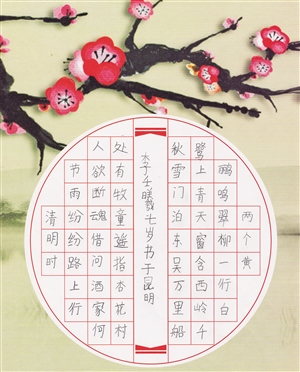 清明时
节雨纷纷路上行
人欲断魂借问酒家何
处有牧童遥指杏花村
两个黄
鹂鸣翠柳一行白
鹭上青天窗含西岭千
秋雪门泊东吴万里船
李壬七岁书于昆明